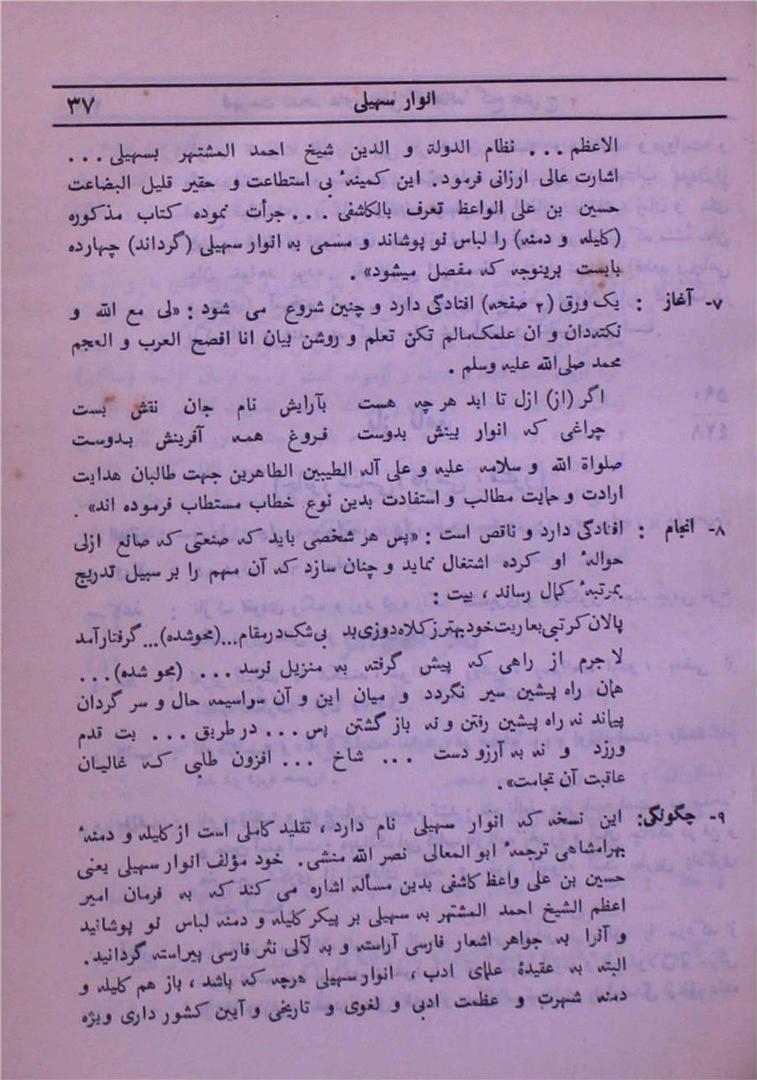 انوار سهیلی ۳۷
الاعظم ... نظام الدولة و الدین شیخ احمد المشتهر بسهیلی ...
اشارت عالی ارزانی فرمود. این کمینهٔ بی استطاعت و حقیر قلیل البضاعت
حسین بن علی الواعظ تعرف بالکاشفی ... جرأت نموده کتاب مذکوره
(کلیله و دمنه) را لباس نو پوشاند و مسمی به انوار سهیلی (گرداند) چهارده
بابست برینوجه که مفصل میشود» .
۷- آغاز : یک ورق (۲ صفحه) افتادگی دارد و چنین شروع می شود : «لی مع الله و
نکته‌دان و ان علمک مالم تکن تعلم و روشن بیان انا افصح العرب و العجم
محمد صلی الله علیه وسلم .
اگر (از) ازل تا ابد هرچه هست بآرایش نام جان نقش بست
چراغی که انوار بینش بدوست فروغ همه آفرینش بدوست
صلواة الله و سلامه علیه و علی آله الطیبین الطاهرین جهت طالبان هدایت
ارادت و حمایت مطالب و استفادت بدین نوع خطاب مستطاب فرموده اند» .
۸- انجام : افتادگی دارد و ناقص است : «پس هر شخصی باید که صنعتی که صانع ازلی
حوالهٔ او کرده اشتغال نماید و چنان سازد که آن مهم را بر سبیل تدریج
بمرتبهٔ کمال رساند ، بیت :
پالان کرتی بعاریت خود بهتر ز کلاه دوزی بد بی شک در مقام ... (محو شده) ... گرفتار آمد
لاجرم از راهی که پیش گرفته به منزیل نرسد ... (محو شده) ...
همان راه پیشین سیر نگردد و میان این و آن سراسیمه حال و سر گردان
بماند نه راه پیشین رفتن و نه باز گشتن پس ... در طریق ... بت قدم
ورزد و نه به آرزو دست ... شاخ ... افزون طلبی که غالیان
عاقبت آن تجاست».
۹- چگونگی: این نسخه که انوار سهیلی نام دارد ، تقلید کاملی است از کلیله و دمنهٔ
بهرامشاهی ترجمهٔ ابو المعالی نصر الله منشی. خود مؤلف انوار سهیلی یعنی
حسین بن علی واعظ کاشفی بدین مسأله اشاره می کند که به فرمان امیر
اعظم الشیخ احمد المشتهر به سهیلی بر پیکر کلیله و دمنه لباس نو پوشانید
و آنرا به جواهر اشعار فارسی آراسته و به لآلی نثر فارسی پیراسته گردانید.
البته به عقیدهٔ علمای ادب ، انوار سهیلی هرچه که باشد ، باز هم کلیله و
دمنه شهرت و عظمت ادبی و لغوی و تاریخی و آیین کشور داری ویژه